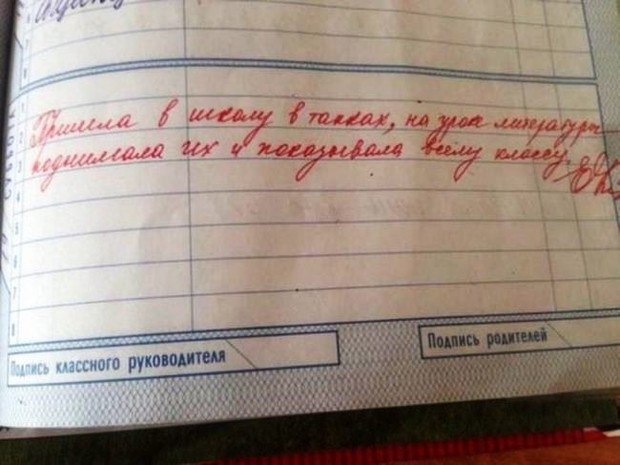 СУББОТА
1
2
3
4
5
6
7
8
Пришла в школу в тапках, на урок литературы
поднимала их и показывала всему классу.
Подпись классного руководителя
Подпись родителей